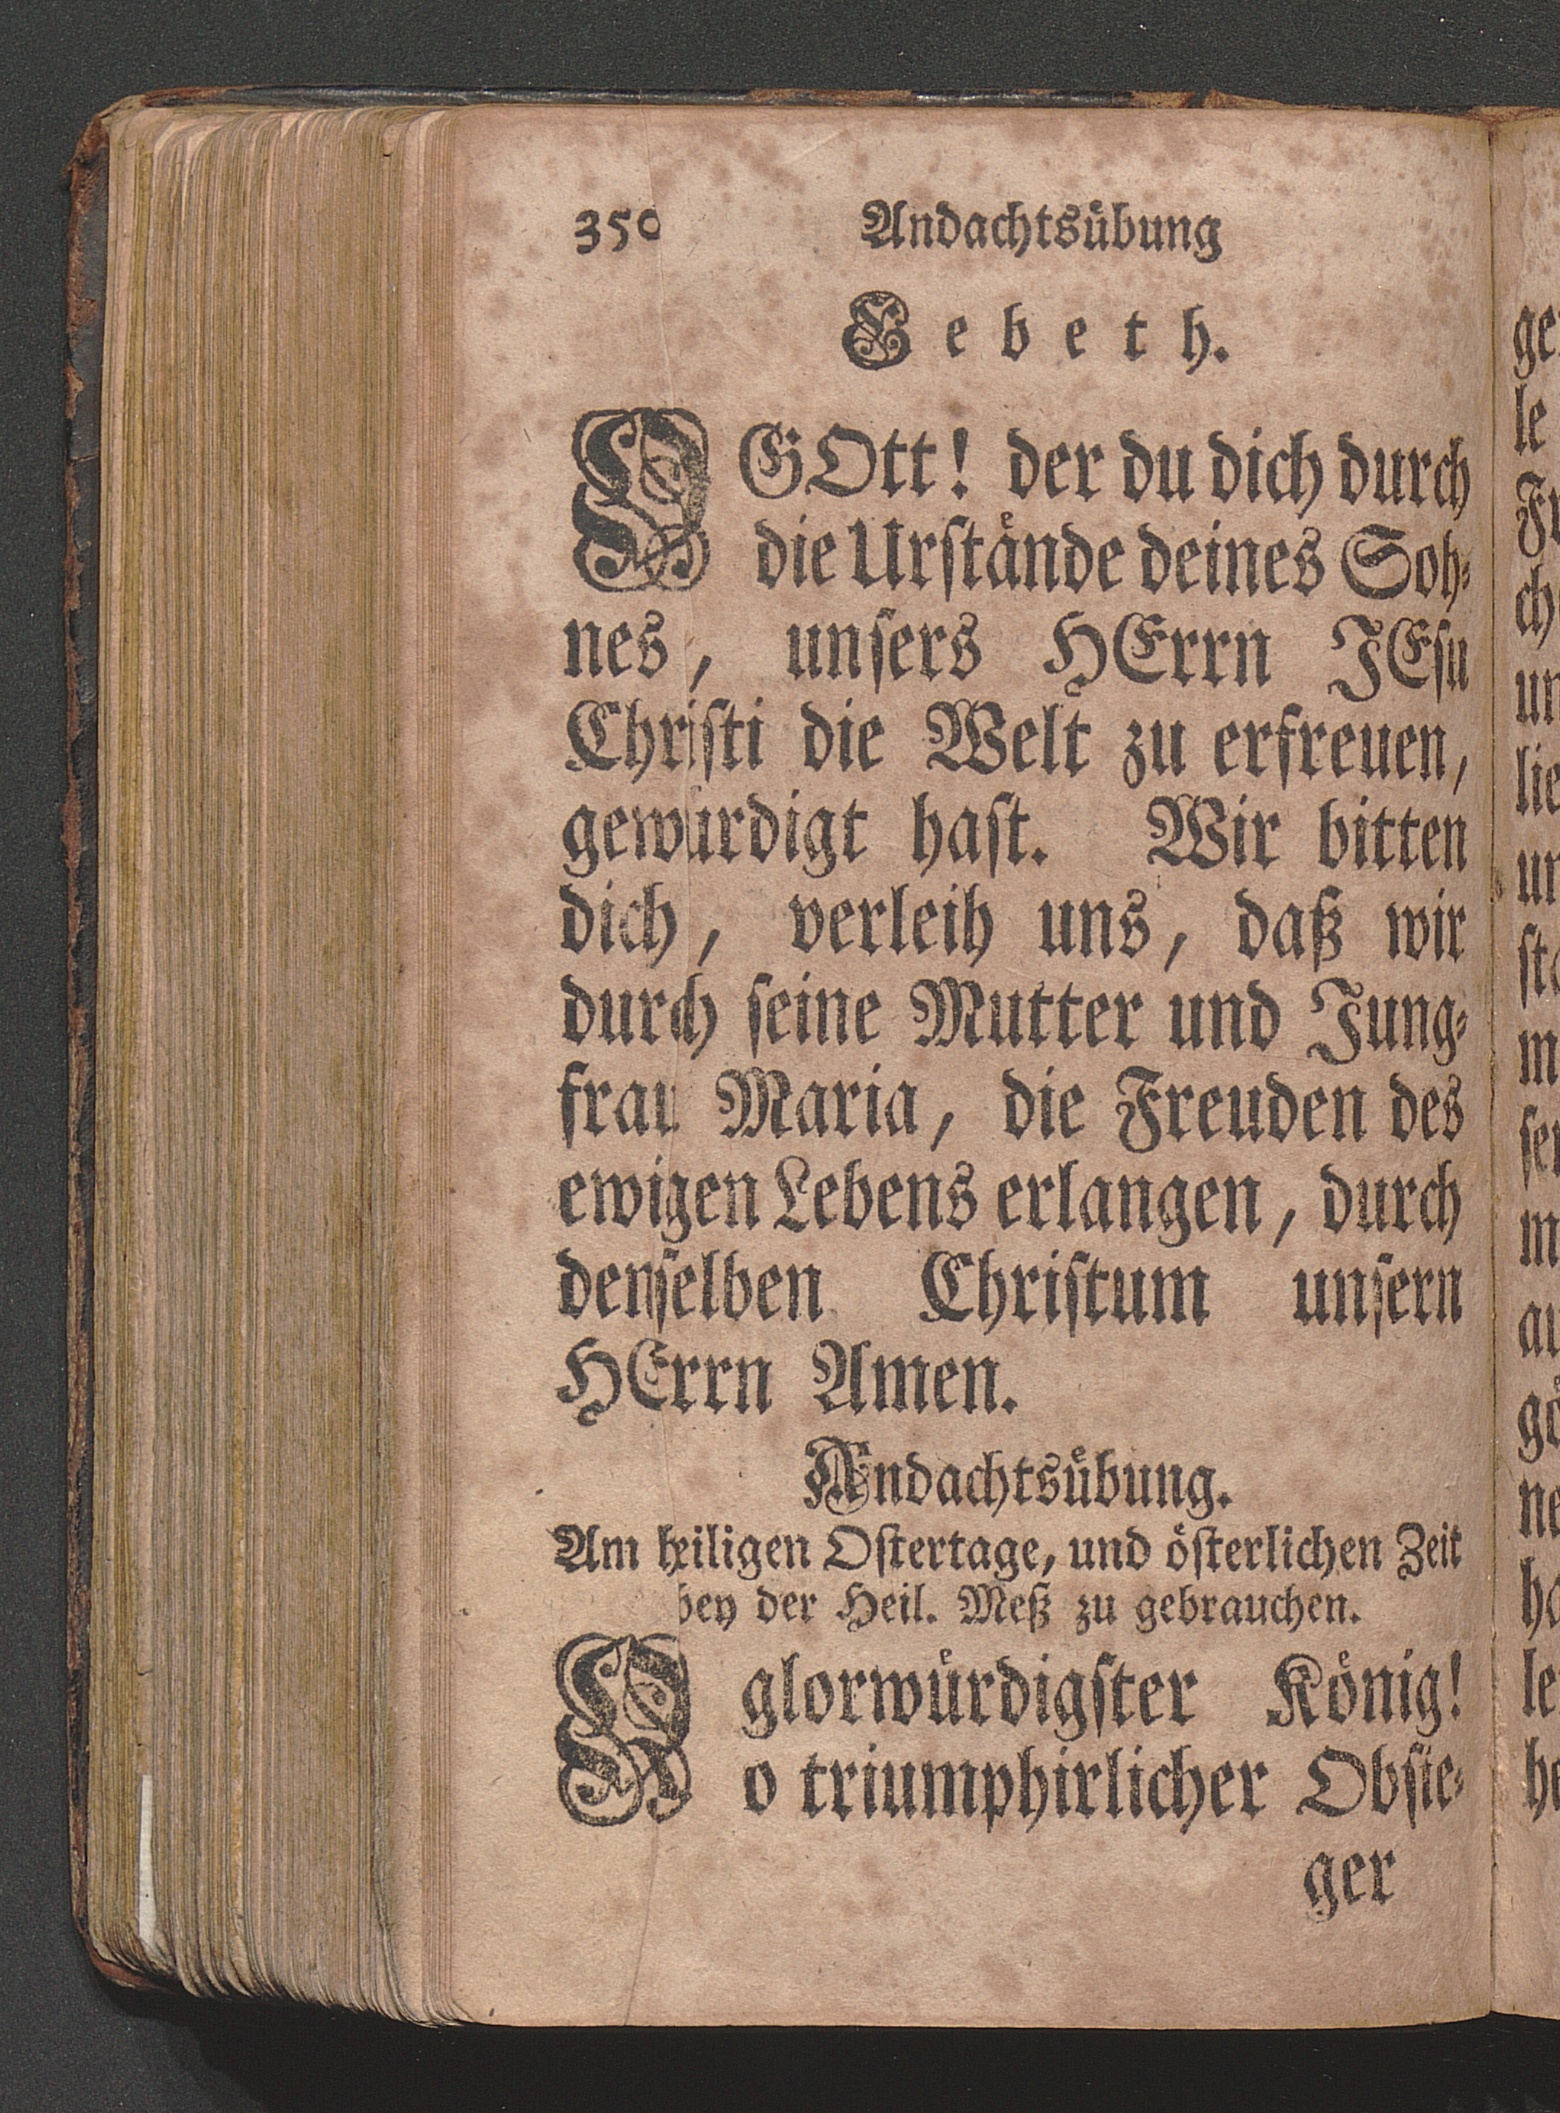 350 Andachtsübung
Gebeth.
O GOtt! der du dich durch
die Urstände deines Soh-
nes, unsers HErrn JEsu
Christi die Welt zu erfreuen,
gewürdigt hast. Wir bitten
dich, verleih uns, daß wir
durch seine Mutter und Jung-
frau Maria, die Freuden des
ewigen Lebens erlangen, durch
denselben Christum unsern
HErrn Amen.
Andachtsübung.
Am heiligen Ostertage, und österlichen Zeit
bey der Heil. Meß zu gebrauchen.
O glorwürdigster König!
o triumphirlicher Obsie-
ger